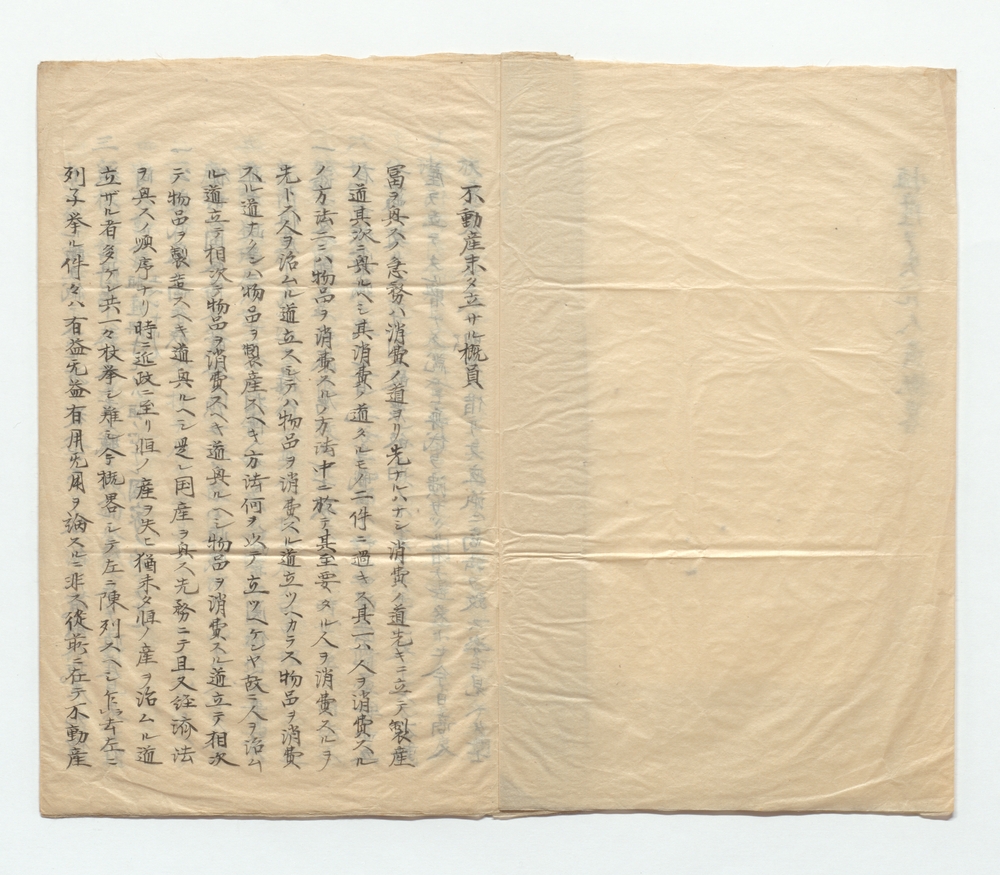 不動産未タ立サル概員
富ヲ興スノ急務ハ消費ノ道ヨリ先ナルハナシ消費ノ道先キニ立テ製産
ノ道其次ニ興ルヘシ其消費ノ道タルモノ二件ニ過キス其一ハ人ヲ消費スル
ノ方法二ニハ物品ヲ消費スルノ方法中ニ於テ其至要タル人ヲ消費スルヲ
先トス人ヲ治ムル道立スシテハ物品ヲ消費スル道立ツヘカラス物品ヲ消費
スル道ナクンハ物品ヲ製産スヘキ方法何ヲ以テ立ツヘケンヤ故ニ人ヲ治ム
ル道立テ相次テ物品ヲ消費スヘキ道興ルヘシ物品ヲ消費スル道立テ相次
テ物品ヲ製造スヘキ道興ルヘシ是レ国産ヲ興ス先務ニテ且又経済法
ヲ興スノ順序ナリ時ニ近政ニ至リ恒ノ産ヲ失ヒ猶未タ恒ノ産ヲ治ムル道
立ザル者多ケレ共一々枚挙シ難シ今概畧シテ左ニ陳列スヘシ乍去左ニ
列子挙ル件々ハ有益无益有用无用ヲ論スルニ非ス従前ニ在テ不動産